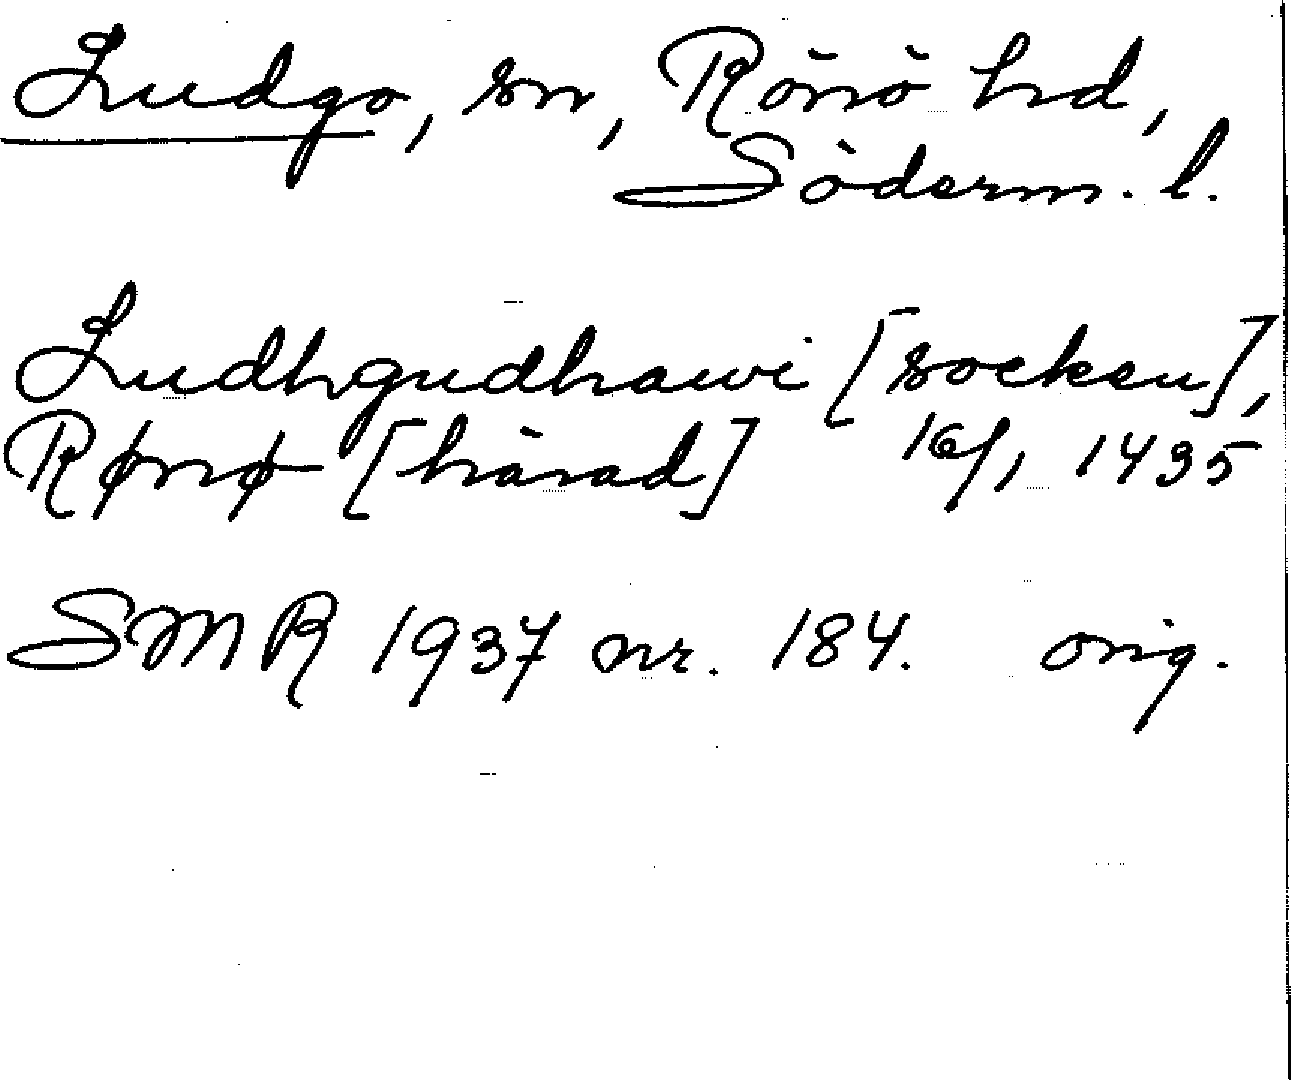 Ludgo, sn, Rönö hd,
Söderm. l.
Ludhgudhawi [socken],
Rønø [härad] 16/1 1435
SMR 1937 nr. 184. orig.